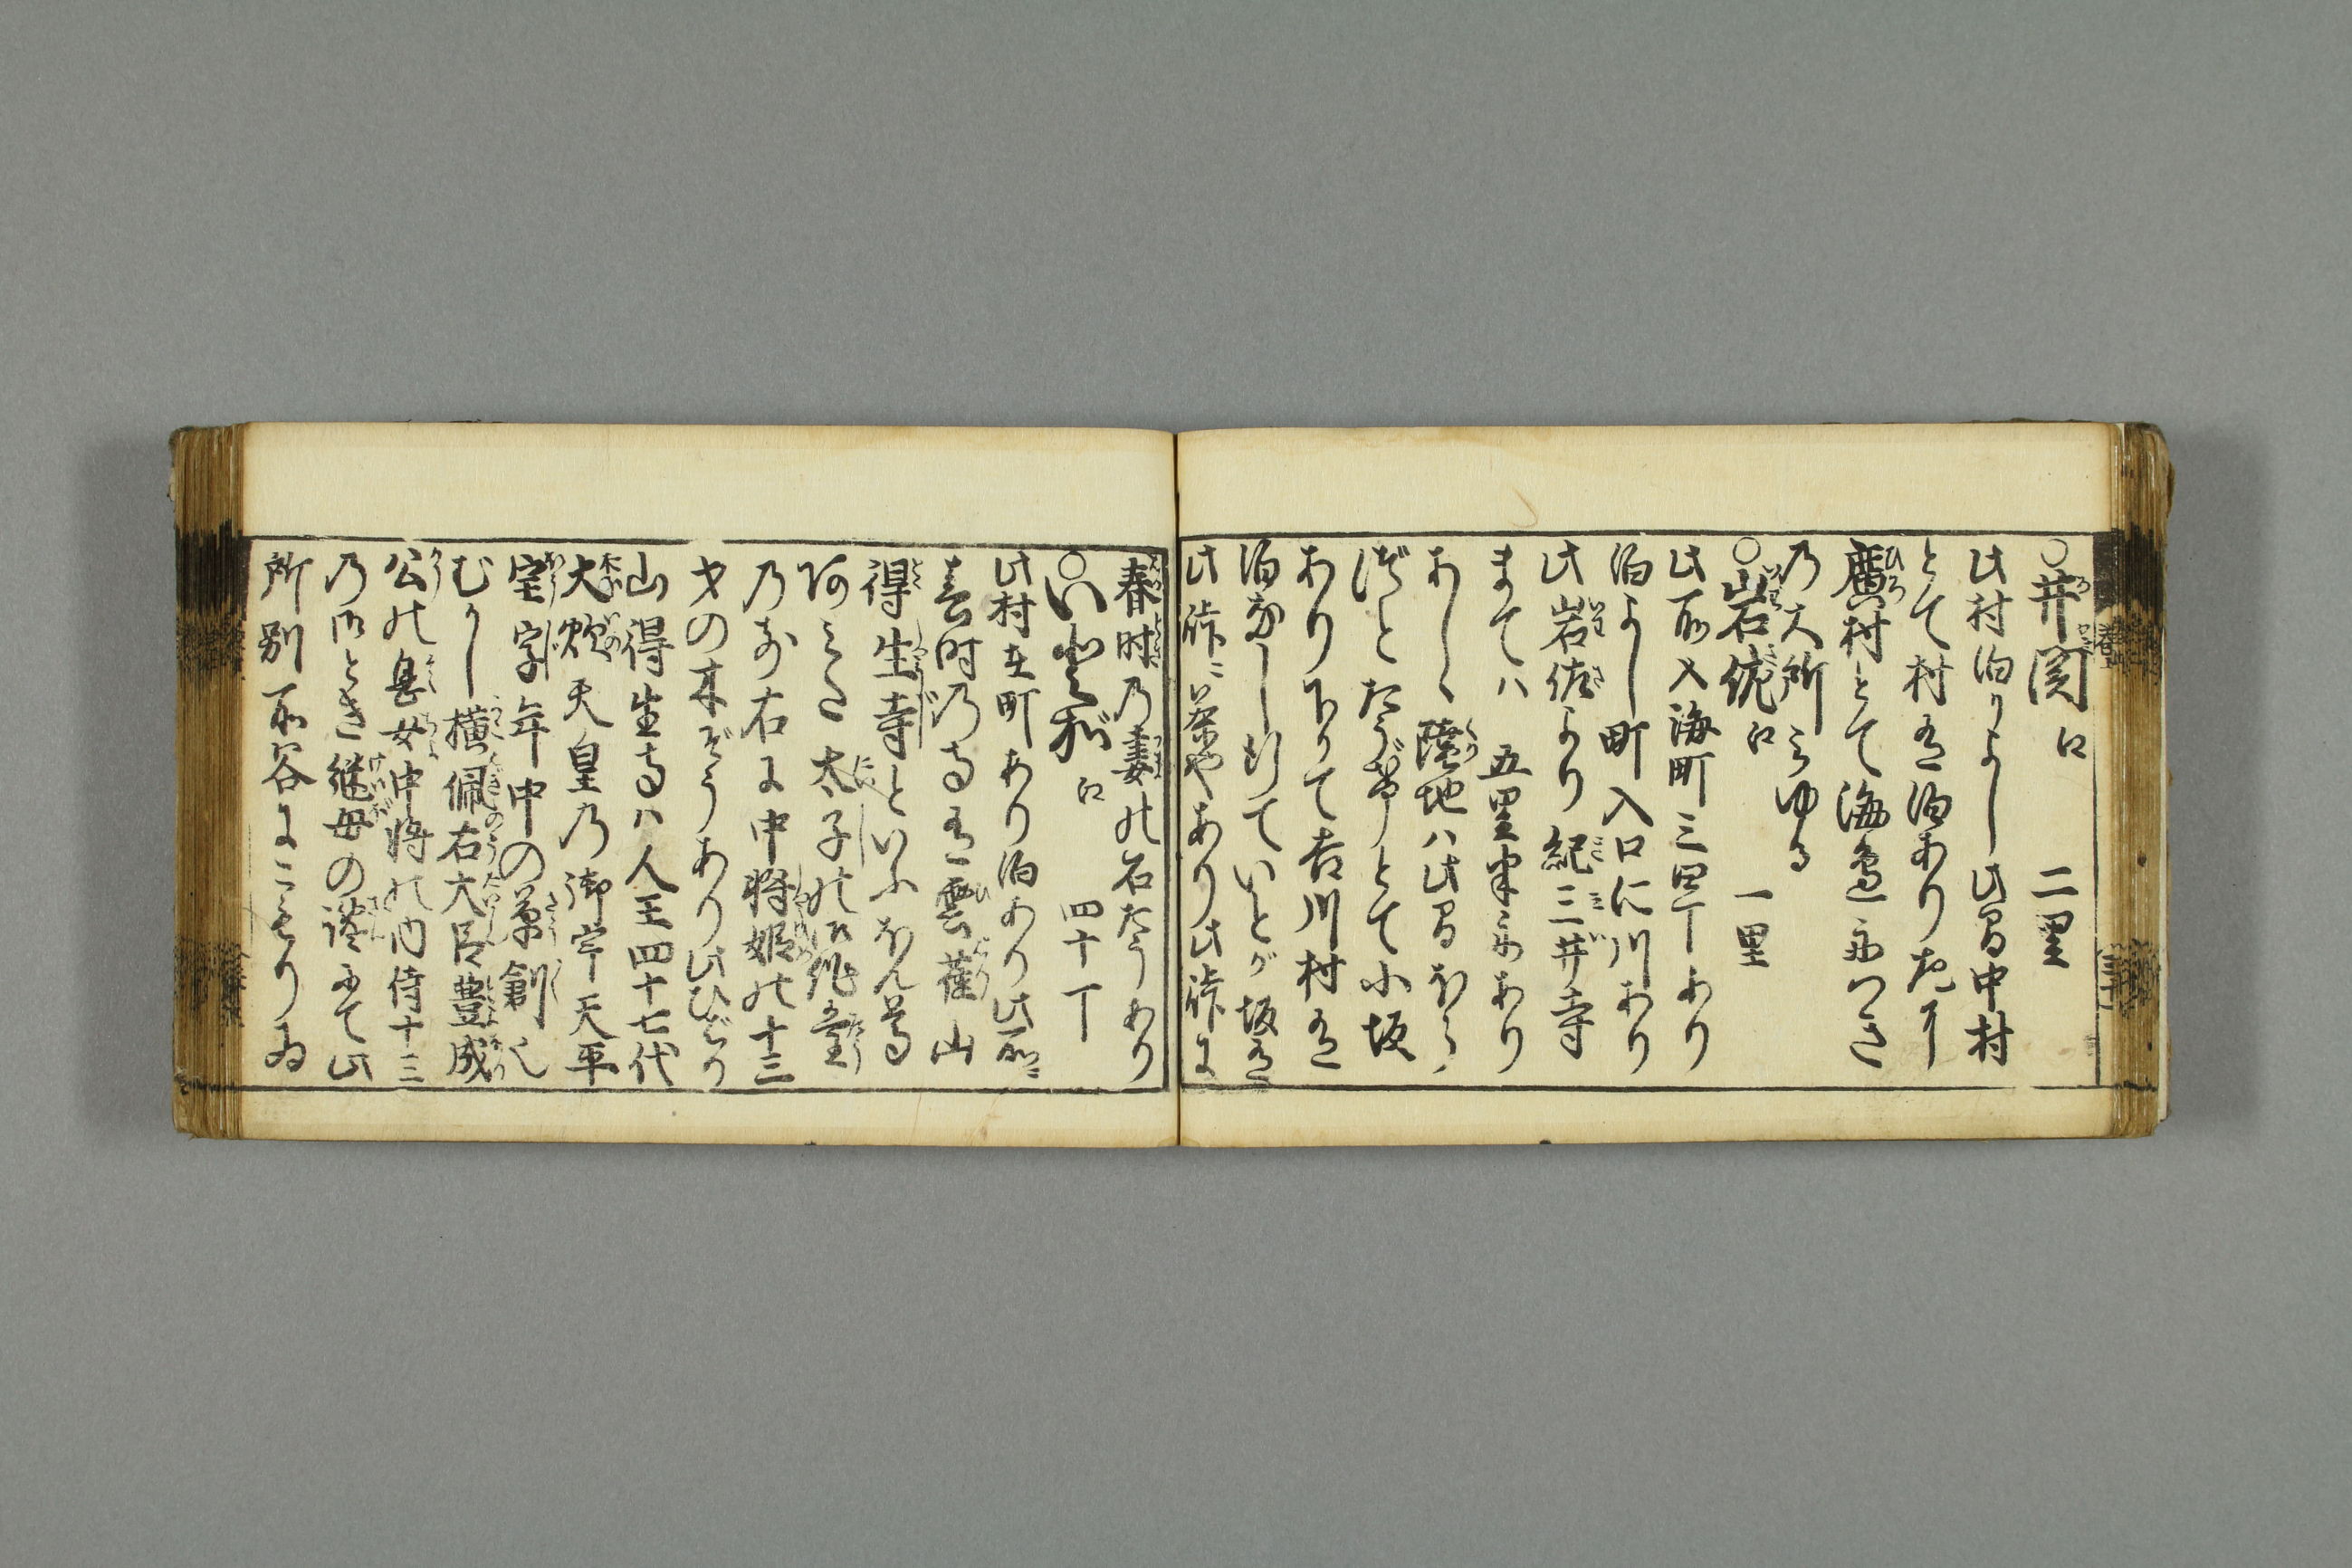 ○井関 ゟ 二里
此村泊りよし此間中村
とて村有泊あり
廣村とて海邉
乃大所
○岩佐 ゟ 一里
此所入海町三四丁あり
泊よし町入口に川あり
此岩佐より紀三井寺
まてハ五里
あしく陸地ハ此間
とて小坂
あり下りて吉川村有
泊なし行ていとが坂有
此峠ニ茶やあり此峠に
春時乃妻の石たうあり
○いとが ゟ 四十丁
此村在町あり泊あり此所ニ
春時乃寺有雲雀山
得生寺といふほん尊
阿みだ太子の御作堂
乃前右に中将姫の十三
才の木ぞうあり此ひばり
山得生寺ハ人王四十七代
大炊天皇乃御宇天平
宝字年中の草創也
むかし横佩右大臣豊成
公の息女中将の内侍十三
乃御とき継母の讒にて此
所別所谷にこもりゐ